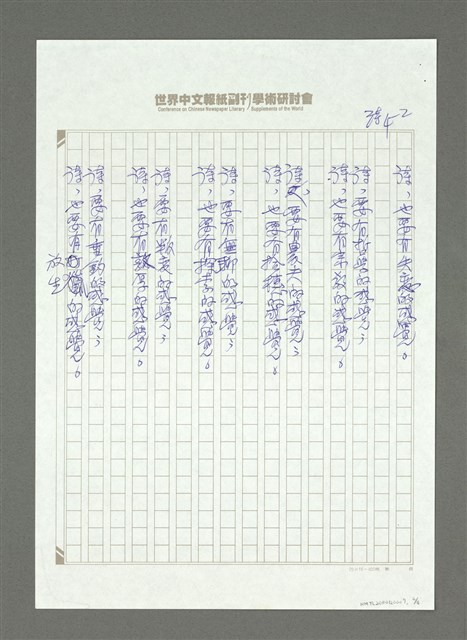 世界中文報紙副刊學術研討會
Conference on Chinese Newspaper Literary Supplements of the World
詩，也要有失戀的感覺。
詩，要有哲學的感覺；
詩，也要有宗教的感覺。
詩，要有農夫的感覺；
詩，也要有拾穗的感覺。
詩，要有無聊的感覺；
詩，也要有探索的感覺。
詩，要有激衷的感覺；
詩，也要有敦厚的感覺。
詩，要有垂釣的感覺；
詩，也要有放生的感覺。